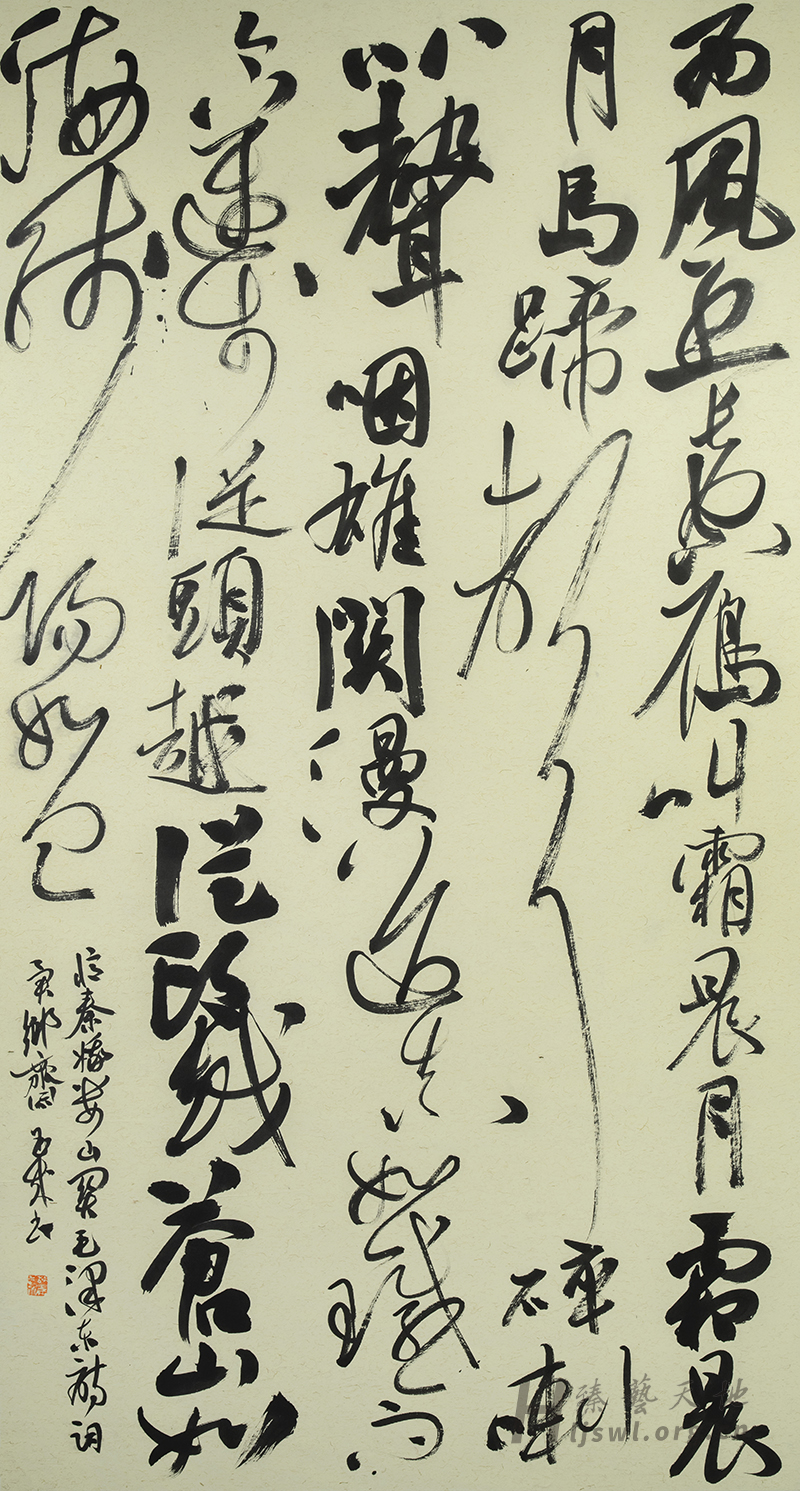 西風烈長空雁叫霜晨月霜晨
月馬蹄聲碎喇
叭聲咽雄關漫道真如鐵而
今邁步從頭越從頭越蒼山如
海殘陽如血
憶秦娥婁山關毛澤東詩詞
鄉齋
臻藝天地
ljswl.org.cn